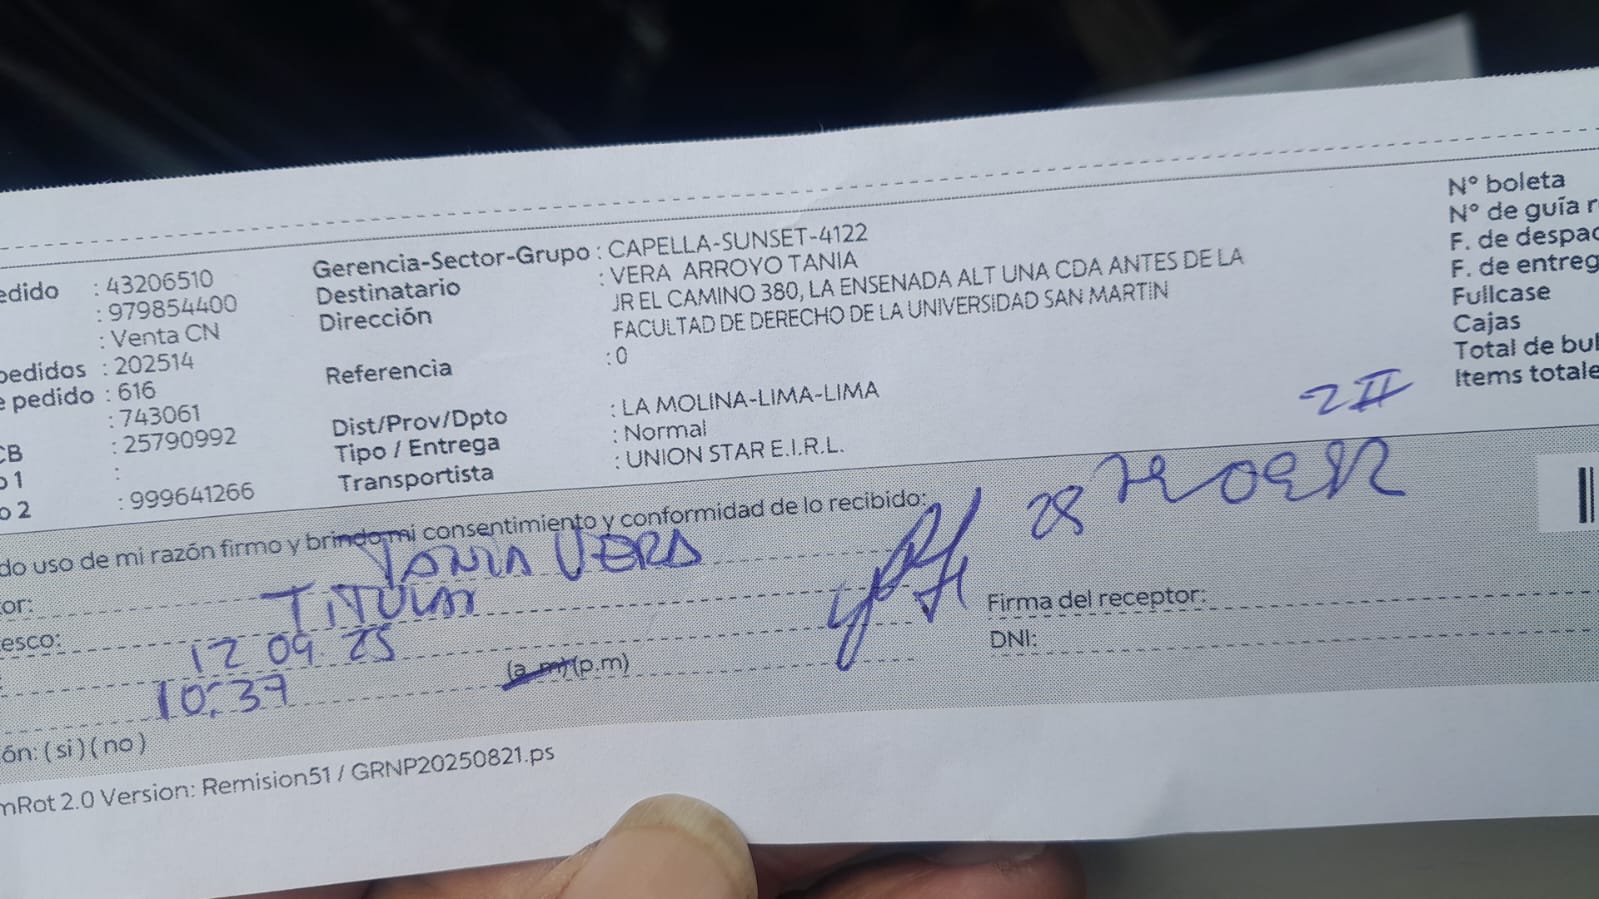 edido : 43206510
: 979854400
: Venta CN
pedidos : 202514
e pedido : 616
: 743061
CB : 25790992
o 1 :
o 2 : 999641266
Gerencia-Sector-Grupo : CAPELLA-SUNSET-4122
Destinatario : VERA ARROYO TANIA
Dirección JR EL CAMINO 380, LA ENSENADA ALT UNA CDA ANTES DE LA
FACULTAD DE DERECHO DE LA UNIVERSIDAD SAN MARTIN
Referencia : 0
Dist/Prov/Dpto : LA MOLINA-LIMA-LIMA
Tipo / Entrega : Normal
Transportista : UNION STAR E.I.R.L.
N° boleta
N° de guía r
F. de despac
F. de entreg
Fullcase
Cajas
Total de bul
Items totale
2 II
do uso de mi razón firmo y brindo mi consentimiento y conformidad de lo recibido:
or: TANIA VERA
esco: TITULAR
12 09. 25
10:37 (a.m) (p.m)
Firma del receptor:
DNI:
ón: ( si ) ( no )
mRot 2.0 Version: Remision51 / GRNP20250821.ps